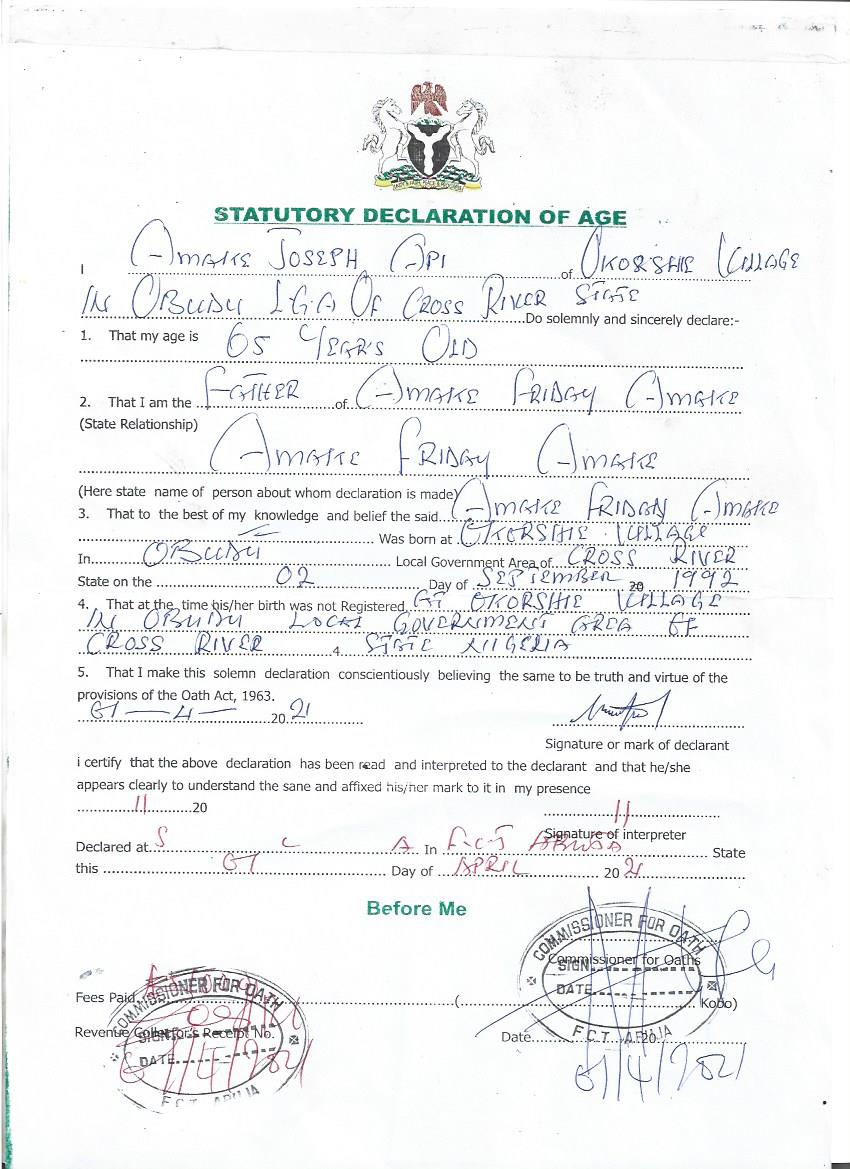 STATUTORY DECLARATION OF AGE
I AMAKE JOSEPH API of OKORSHIE VILLAGE
IN OBUDU L.G.A OF CROSS RIVER STATE Do solemnly and sincerely declare:-
1. That my age is 65 YEAR'S OLD
2. That I am the FATHER of AMAKE FRIDAY AMAKE
(State Relationship)
AMAKE FRIDAY AMAKE
(Here state name of person about whom declaration is made)
3. That to the best of my knowledge and belief the said AMAKE FRIDAY AMAKE
Was born at OKORSHIE VILLAGE
In OBUDU Local Government Area of CROSS RIVER
State on the 02 Day of SEPTEMBER 20 1992
4. That at the time his/her birth was not Registered AT OKORSHIE VILLAGE
IN OBUDU LOCAL GOVERNMENT AREA OF
CROSS RIVER 4. STATE NIGERIA
5. That I make this solemn declaration conscientiously believing the same to be truth and virtue of the
provisions of the Oath Act, 1963.
01-4-2021
Signature or mark of declarant
i certify that the above declaration has been read and interpreted to the declarant and that he/she
appears clearly to understand the sane and affixed his/her mark to it in my presence
11 20 11
Signature of interpreter
Declared at S C A In F.C.T ABUJA State
this 01 Day of APRIL 2021
Before Me
COMMISSIONER FOR OATH
Commissioner for Oaths
SIGN
DATE
F.C.T. ABUJA
Fees Paid ( Kobo)
Revenue Collector's Receipt No.
Date 20
01/4/2021
COMMISSIONER FOR OATH
SIGN
DATE
01/4/2021
F.C.T. ABUJA